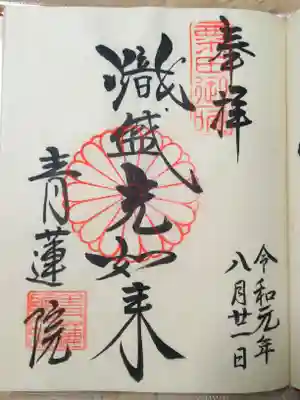 奉拝
粟田御所
熾盛光如来
青蓮院
令和元年
八月廿一日